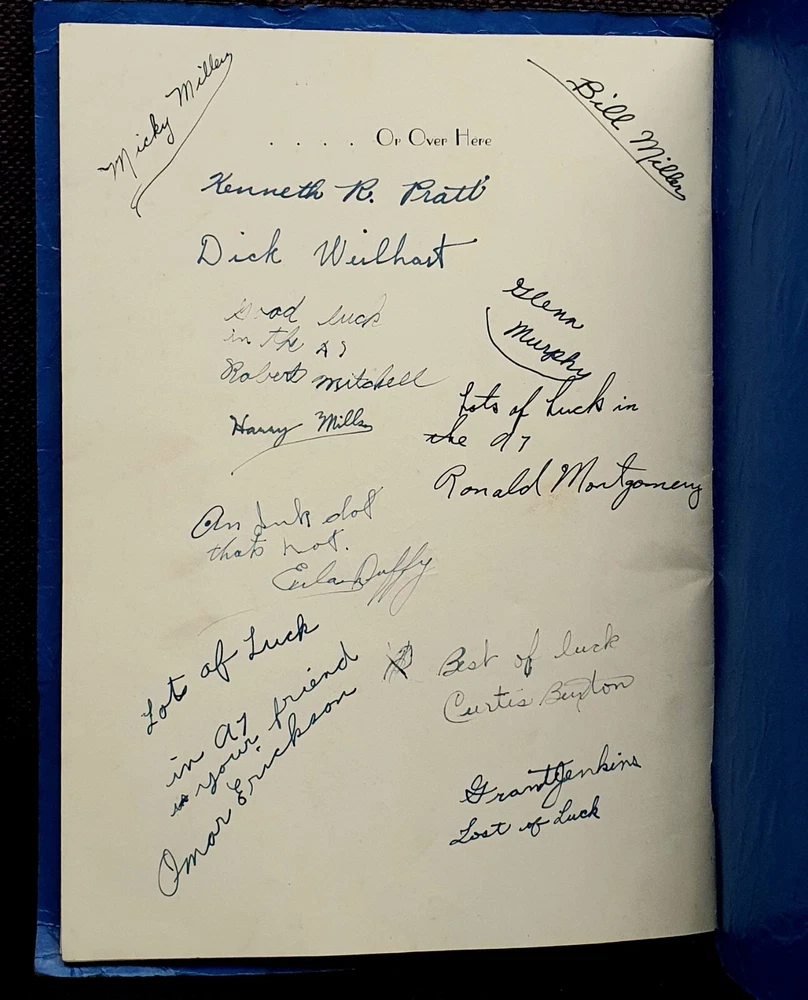 Micky Miller
Bill Miller
. . . . Or Over Here
Kenneth R. Pratt
Dick Weilhart
Glenn
Murphy
Good luck
in the A7
Robert Mitchell
Harry Mills
Lots of Luck in
the A7
Ronald Montgomery
An Ink dot
thats hot.
Duffy
Lots of Luck
in A7
is your friend
Omar Erickson
Best of luck
Curtis Buxton
Grant Jenkins
Lost of Luck